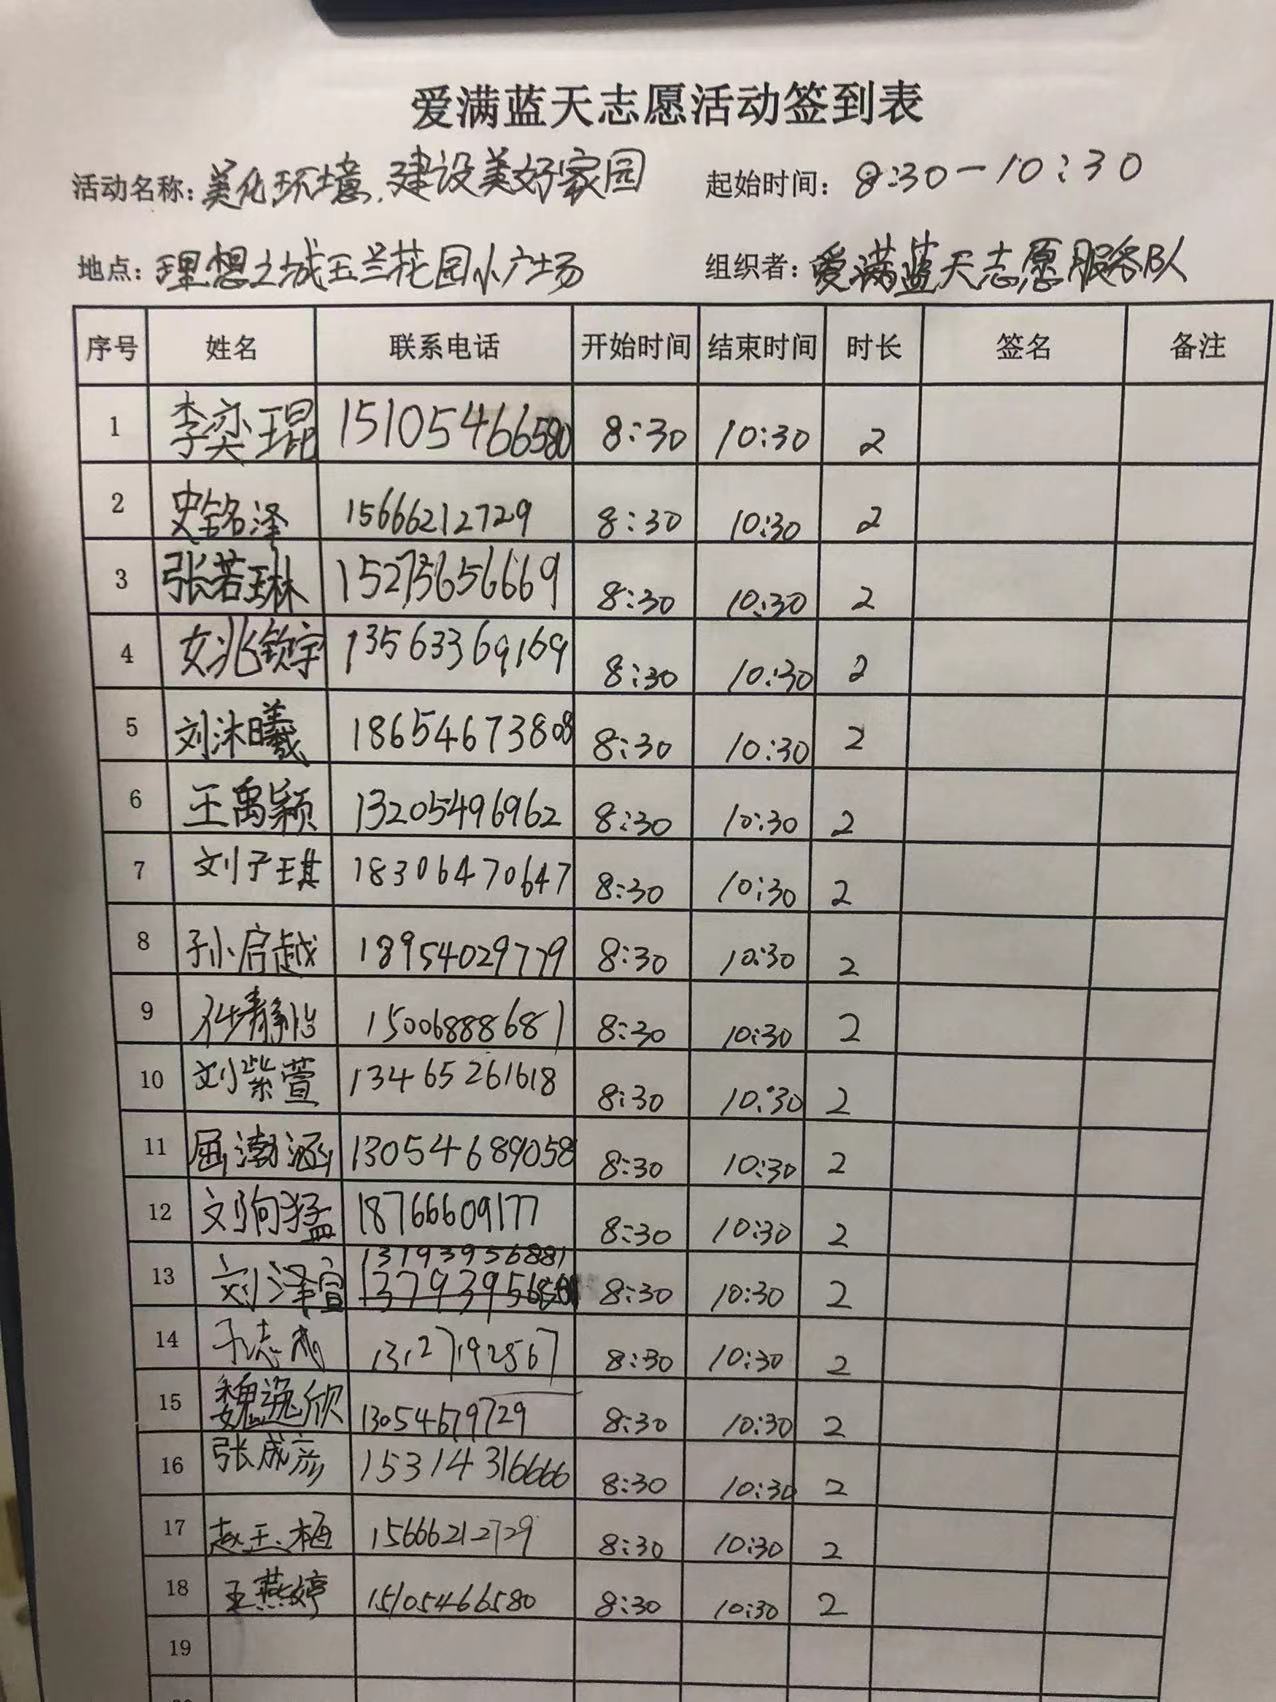 爱满蓝天志愿活动签到表
活动名称: 美化环境.建设美好家园 起始时间: 8:30-10:30
地点: 理想之城玉兰花园小广场 组织者: 爱满蓝天志愿服务队
序号 姓名 联系电话 开始时间 结束时间 时长 签名 备注
1 李奕琨 15105466580 8:30 10:30 2
2 史铭泽 15666212729 8:30 10:30 2
3 张若琳 15275656669 8:30 10:30 2
4 姚钦宇 13563369169 8:30 10:30 2
5 刘沐曦 18654673808 8:30 10:30 2
6 王禹颖 13205496962 8:30 10:30 2
7 刘子琪 18306470647 8:30 10:30 2
8 孙启越 18954029779 8:30 10:30 2
9 静怡 15006888681 8:30 10:30 2
10 刘紫萱 13465261618 8:30 10:30 2
11 屈渤涵 13054689058 8:30 10:30 2
12 刘珣猛 18766609177 8:30 10:30 2
13793956881
13 刘泽宣 8:30 10:30 2
14 于志 13127192567 8:30 10:30 2
15 魏逸欣 13054679729 8:30 10:30 2
16 张成彦 15314316666 8:30 10:30 2
17 赵玉梅 15666212729 8:30 10:30 2
18 王燕婷 15105466580 8:30 10:30 2
19